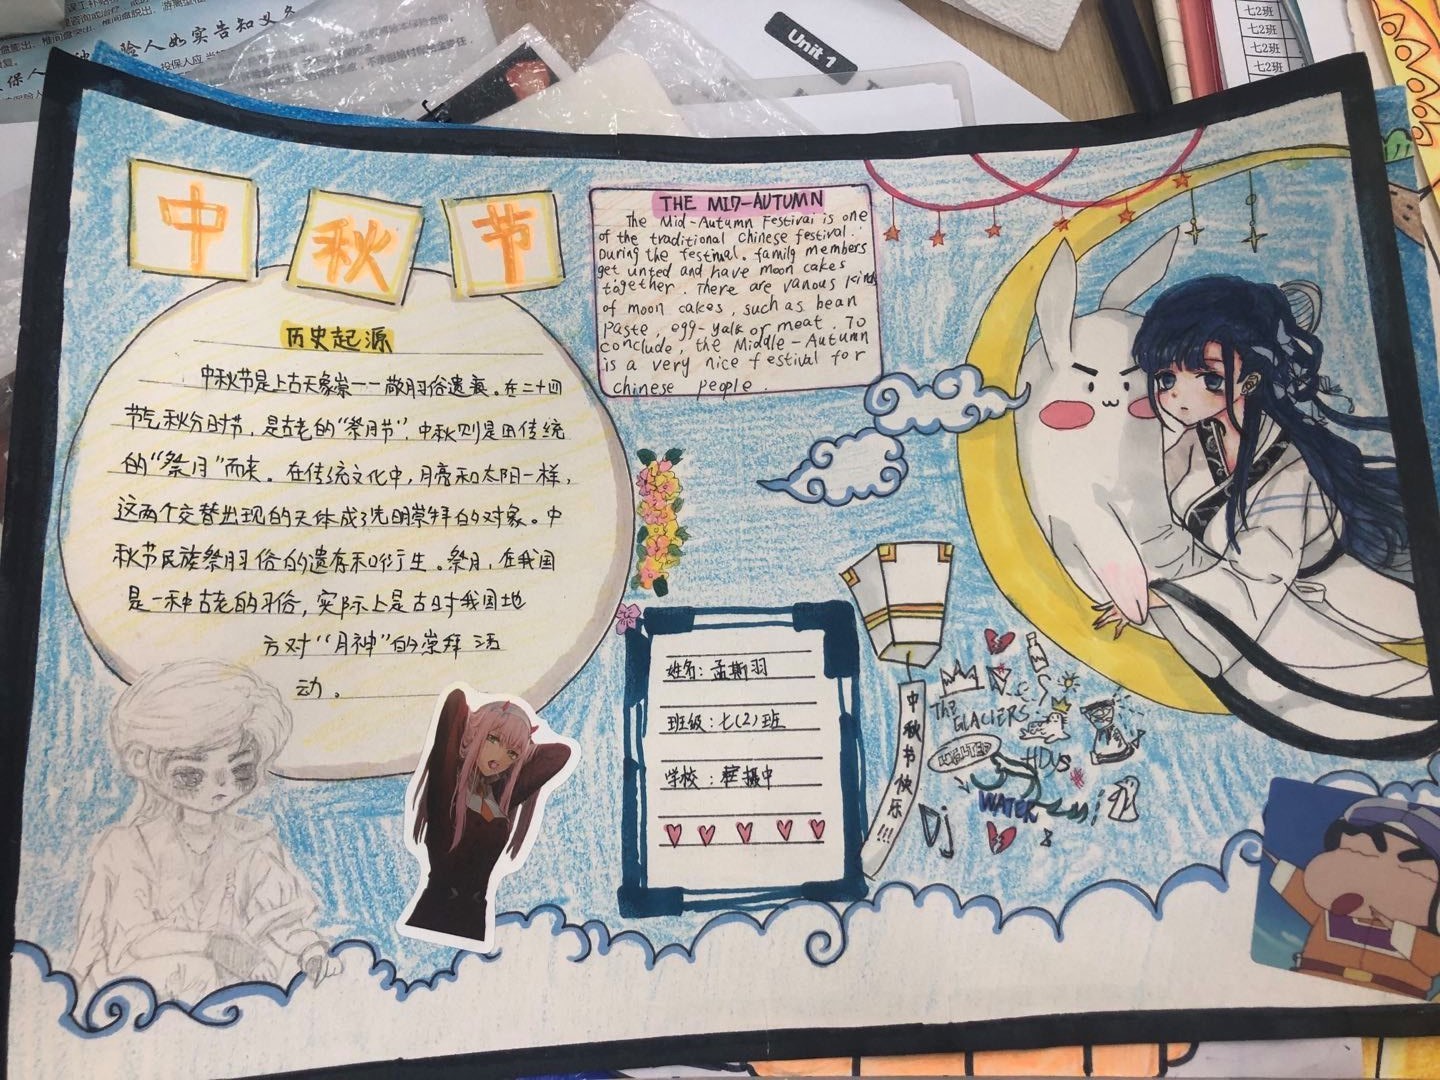 中秋节
历史起源
中秋节是上古天象崇——敬月习俗遗痕。在二十四
节气秋分时节,是古老的“祭月节”,中秋则是由传统
的“祭月”而来。在传统文化中,月亮和太阳一样,
这两个交替出现的天体成了先民崇拜的对象。中
秋节民族祭月习俗的遗存和衍生。祭月,在我国
是一种古老的习俗,实际上是古时我国地
方对“月神”的崇拜活
动。
THE MID-AUTUMN
The Mid-Autumn Festivai is one
of the traditional Chinese festival.
During the festival. family members
get unted and have moon cakes
together. There are vanous kinds
of moon cakes, such as bean
Paste, egg-yalk or meat. To
conclude, the Middle-Autumn
is a very nice festival for
chinese people.
姓名:孟斯羽
班级:七(2)班
学校:
中秋节快乐!!!
THE
GLACIERS
MELTED
WATER
Dj
Unit 1
七2班
七2班
七2班
七2班
险人如实告知义务